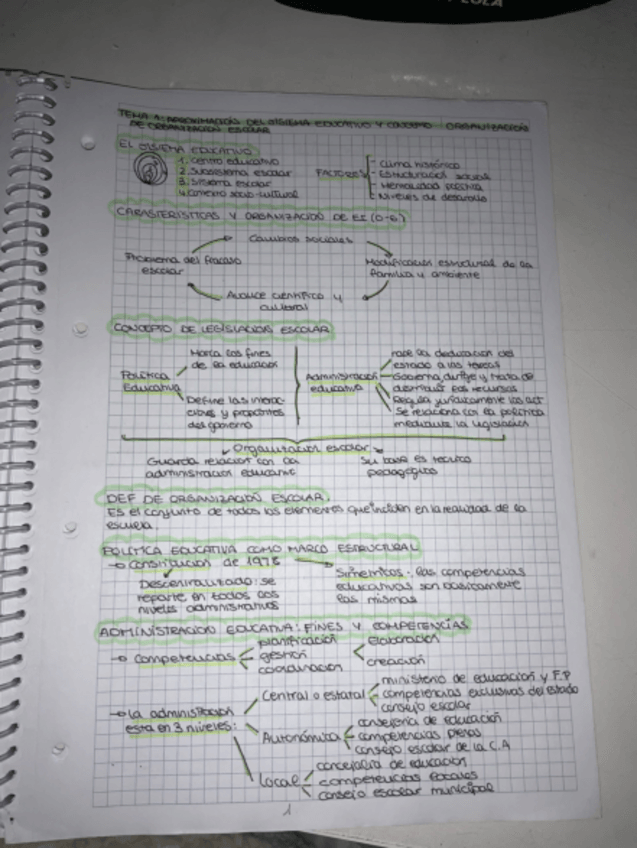 TEMA 1: APROXIMACIÓN DEL SISTEMA EDUCATIVO Y CONCEPTO ORGANIZACIÓN
DE ORGANIZACIÓN ESCOLAR
EL SISTEMA EDUCATIVO
1. Centro educativo
2. Subsistema escolar
3. Sistema escolar
4. Contexto socio-cultural
FACTORES
- Clima histórico
- Estructuras social
- Mentalidad política
- Niveles de desarrollo
CARACTERISTICAS Y ORGANIZACIÓN DE EI (0-6)
Cambios sociales
Problema del fracaso
escolar
Modificación estructural de la
familia y ambiente
Avance científico y
cultural
CONCEPTO DE LEGISLACIÓN ESCOLAR
Política
Educativa
Marca los fines
de la educación
Define las interac-
ciones y
del gobierno
Administración
educativa
del
estado a las tareas
Gobierna, dirige y trata de
los recursos
Regula jurídicamente los act
Se relaciona con la política
mediante la legislación
Organización escolar
Guarda relación con la
administración educativa
Su base es técnico
pedagógico
DEF DE ORGANIZACIÓN ESCOLAR
Es el conjunto de todos los elementos que inciden en la realidad de la
escuela.
POLÍTICA EDUCATIVA COMO MARCO ESTRUCTURAL
→ Constitución de 1978
Descentralizado: se
reparte en todos los
niveles administrativos
Simétricos: las competencias
educativas son básicamente
las mismas
ADMINISTRACIÓN EDUCATIVA: FINES Y COMPETENCIAS
→ Competencias
planificación
gestión
coordinación
elaboración
creación
→ La administración
esta en 3 niveles:
Central o estatal
ministerio de educación y F.P
competencias exclusivas del estado
consejo escolar
Autonómica
consejería de educación
competencias
consejo escolar de la C.A
Local
concejalía de educación
competencias locales
consejo escolar municipal
1